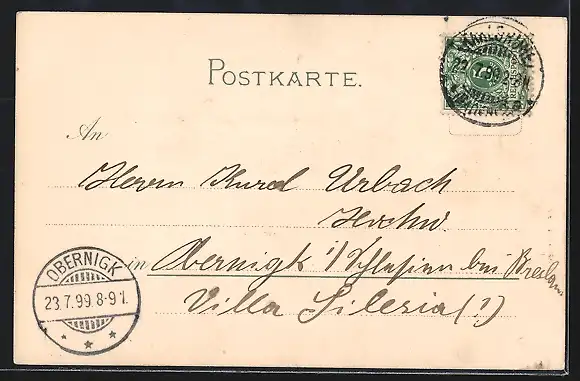 POSTKARTE.
22.7.99
An
Herrn Kurd Urbach
Hochw.
in Obernigk i/Schlesien bei Breslau
Villa Silesia (!)
OBERNIGK
23.7.99.8-9V.